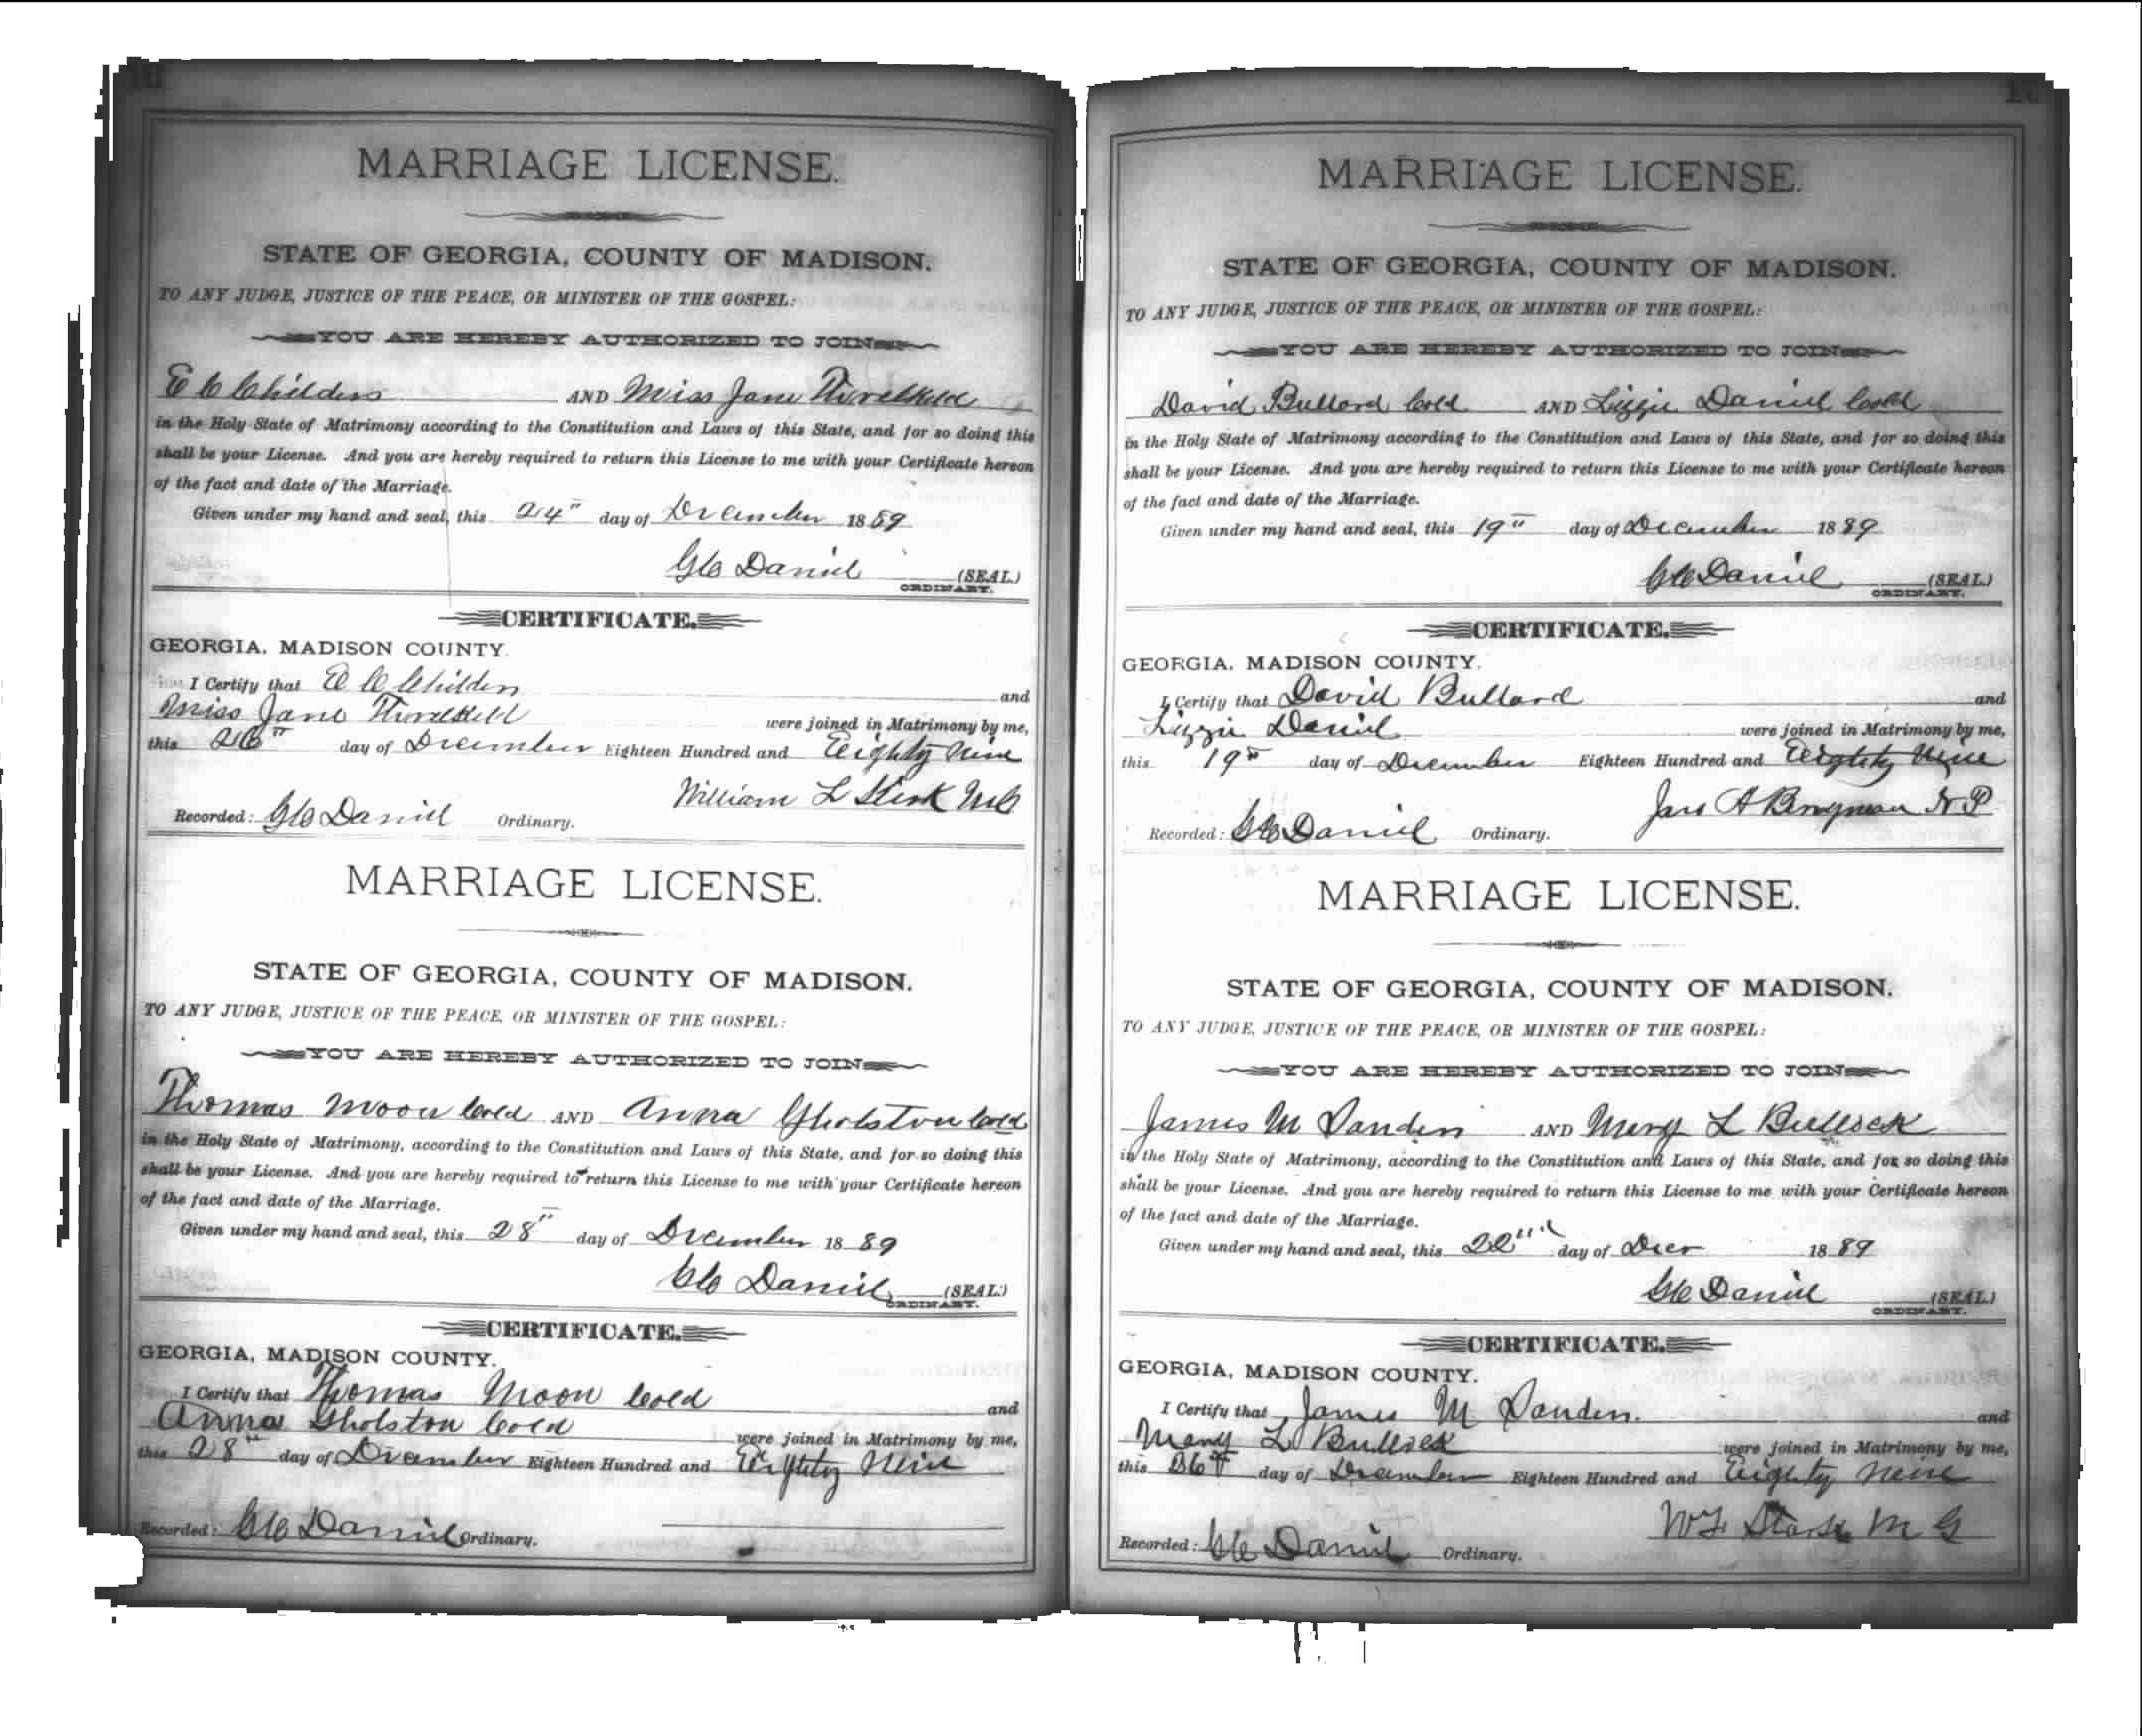 MARRIAGE LICENSE.
STATE OF GEORGIA, COUNTY OF MADISON.
TO ANY JUDGE, JUSTICE OF THE PEACE, OR MINISTER OF THE GOSPEL:
YOU ARE HEREBY AUTHORIZED TO JOIN
E C Childers AND Miss Jane Threlkeld
in the Holy State of Matrimony according to the Constitution and Laws of this State, and for so doing this
shall be your License. And you are hereby required to return this License to me with your Certificate hereon
of the fact and date of the Marriage.
Given under my hand and seal, this 24" day of December 1889
GC Daniel (SEAL)
ORDINARY.
CERTIFICATE.
GEORGIA, MADISON COUNTY.
I Certify that E C Childers and
Miss Jane Threlkeld were joined in Matrimony by me,
this 26" day of December Eighteen Hundred and Eighty Nine
William L MG
Recorded: GC Daniel Ordinary.
MARRIAGE LICENSE.
STATE OF GEORGIA, COUNTY OF MADISON.
TO ANY JUDGE, JUSTICE OF THE PEACE, OR MINISTER OF THE GOSPEL:
YOU ARE HEREBY AUTHORIZED TO JOIN
Thomas Moon Cold AND Anna Gholston Cold
in the Holy State of Matrimony, according to the Constitution and Laws of this State, and for so doing this
shall be your License. And you are hereby required to return this License to me with your Certificate hereon
of the fact and date of the Marriage.
Given under my hand and seal, this 28" day of December 1889
GC Daniel (SEAL)
ORDINARY.
CERTIFICATE.
GEORGIA, MADISON COUNTY.
I Certify that Thomas Moon Cold and
Anna Gholston Cold were joined in Matrimony by me,
this 28" day of December Eighteen Hundred and Eighty Nine
Recorded: GC Daniel Ordinary.
MARRIAGE LICENSE.
STATE OF GEORGIA, COUNTY OF MADISON.
TO ANY JUDGE, JUSTICE OF THE PEACE, OR MINISTER OF THE GOSPEL:
YOU ARE HEREBY AUTHORIZED TO JOIN
David Bullard Cold AND Lizzie Daniel Cold
in the Holy State of Matrimony according to the Constitution and Laws of this State, and for so doing this
shall be your License. And you are hereby required to return this License to me with your Certificate hereon
of the fact and date of the Marriage.
Given under my hand and seal, this 19" day of December 1889
GC Daniel (SEAL)
ORDINARY.
CERTIFICATE.
GEORGIA, MADISON COUNTY.
I Certify that David Bullard and
Lizzie Daniel were joined in Matrimony by me,
this 19" day of December Eighteen Hundred and Eighty Nine
Jas A NP
Recorded: GC Daniel Ordinary.
MARRIAGE LICENSE.
STATE OF GEORGIA, COUNTY OF MADISON.
TO ANY JUDGE, JUSTICE OF THE PEACE, OR MINISTER OF THE GOSPEL:
YOU ARE HEREBY AUTHORIZED TO JOIN
James M AND Mary L Bullock
in the Holy State of Matrimony, according to the Constitution and Laws of this State, and for so doing this
shall be your License. And you are hereby required to return this License to me with your Certificate hereon
of the fact and date of the Marriage.
Given under my hand and seal, this day of Decr 1889
GC Daniel (SEAL)
ORDINARY.
CERTIFICATE.
GEORGIA, MADISON COUNTY.
I Certify that James M and
Mary L Bullock were joined in Matrimony by me,
this 26 day of December Eighteen Hundred and Eighty Nine
M G
Recorded: GC Daniel Ordinary.